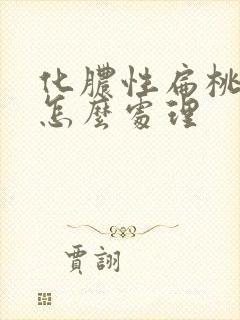 化膿性扁桃
怎麼處理
賈詡